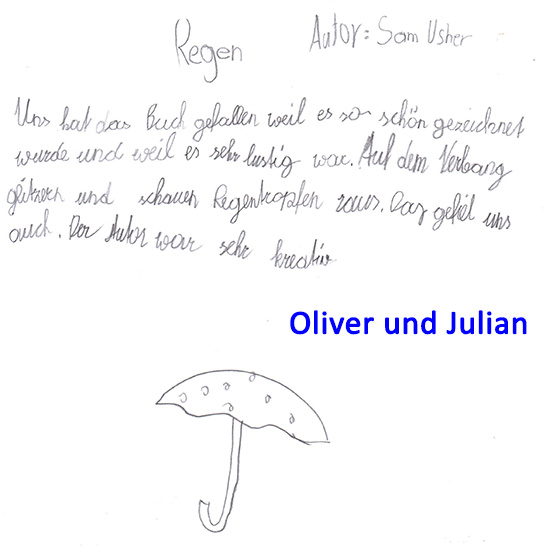 Regen Autor: Sam Usher
Uns hat das Buch gefallen weil es so schön gezeichnet
wurde und weil es sehr lustig war. Auf dem Vorhang
glitzern und schauen Regentropfen raus. Das gefiel uns
auch. Der Autor war sehr kreativ
Oliver und Julian